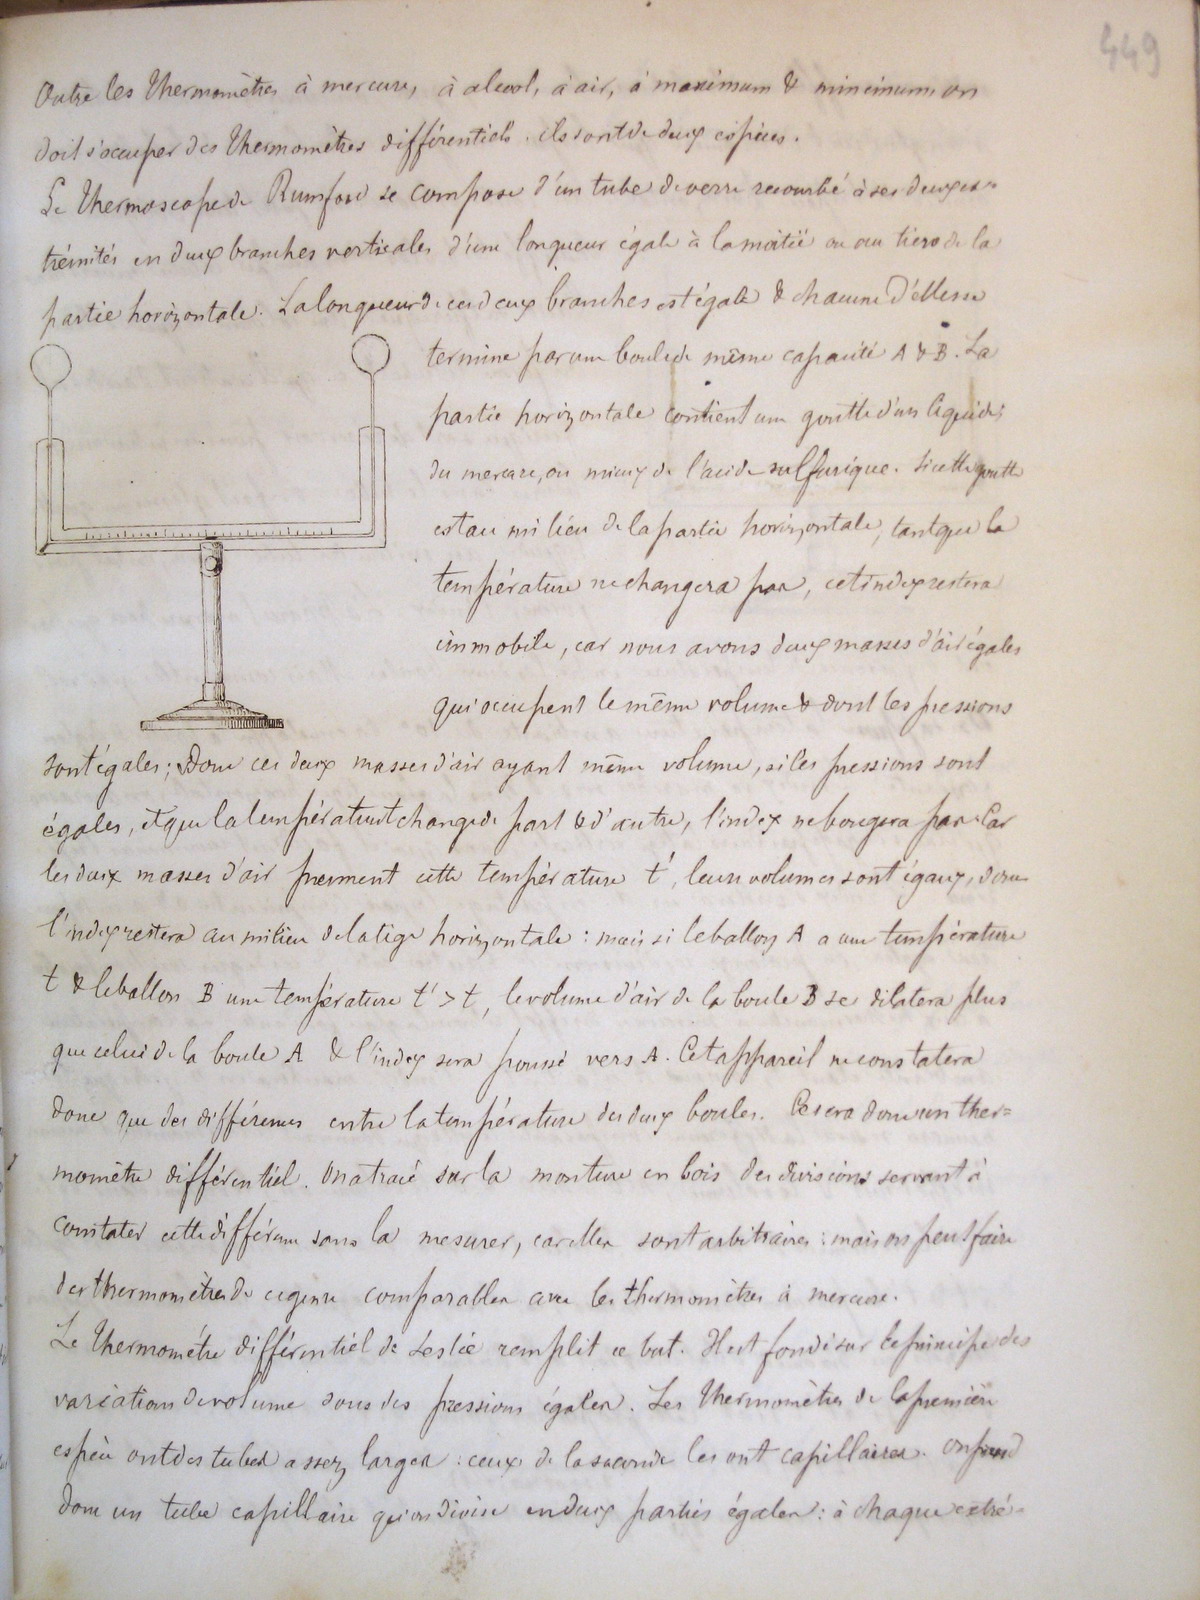 449
Outre les thermomètres à mercure, à alcool, à air, à maximum & minimum, on
doit s'occuper des thermomètres différentiels. ils sont de deux espèces.
Le thermoscope de Rumford se compose d'un tube de verre recourbé à ses deux ex=
trémités en deux branches verticales d'une longueur égale à la moitié ou au tiers de la
partie horizontale. La longueur de ces deux branches est égale & chacune d'elles se
termine par une boule de même capacité A & B. La
partie horizontale contient une goutte d'un liquide;
du mercure, ou mieux de l'acide sulfurique. Si cette goutte
est au milieu de la partie horizontale, tant que la
température ne changera pas, cet index restera
immobile, car nous avons deux masses d'air égales
qui occupent le même volume & dont les pressions
sont égales; Donc ces deux masses d'air ayant même volume, si les pressions sont
égales, et que la température change de part & d'autre, l'index ne bougera pas. Car
les deux masses d'air prennent cette température t', leurs volumes sont égaux, donc
l'index restera au milieu de la tige horizontale : mais si le ballon A a une température
t & le ballon B une température t' > t, le volume d'air de la boule B se dilatera plus
que celui de la boule A & l'index sera poussé vers A. Cet appareil ne constatera
donc que des différences entre la température des deux boules. Ce sera donc un ther=
momètre différentiel. On a tracé sur la monture en bois des divisions servant à
constater cette différence sans la mesurer, car elles sont arbitraires : mais on peut faire
des thermomètres de ce genre comparables avec les thermomètres à mercure.
Le thermomètre différentiel de Leslie remplit ce but. Il est fondé sur le principe des
variations de volume sous des pressions égales. Les thermomètres de la première
espèce ont des tubes assez larges : ceux de la seconde les ont capillaires. On prend
donc un tube capillaire qu'on divise en deux parties égales : à chaque extré=